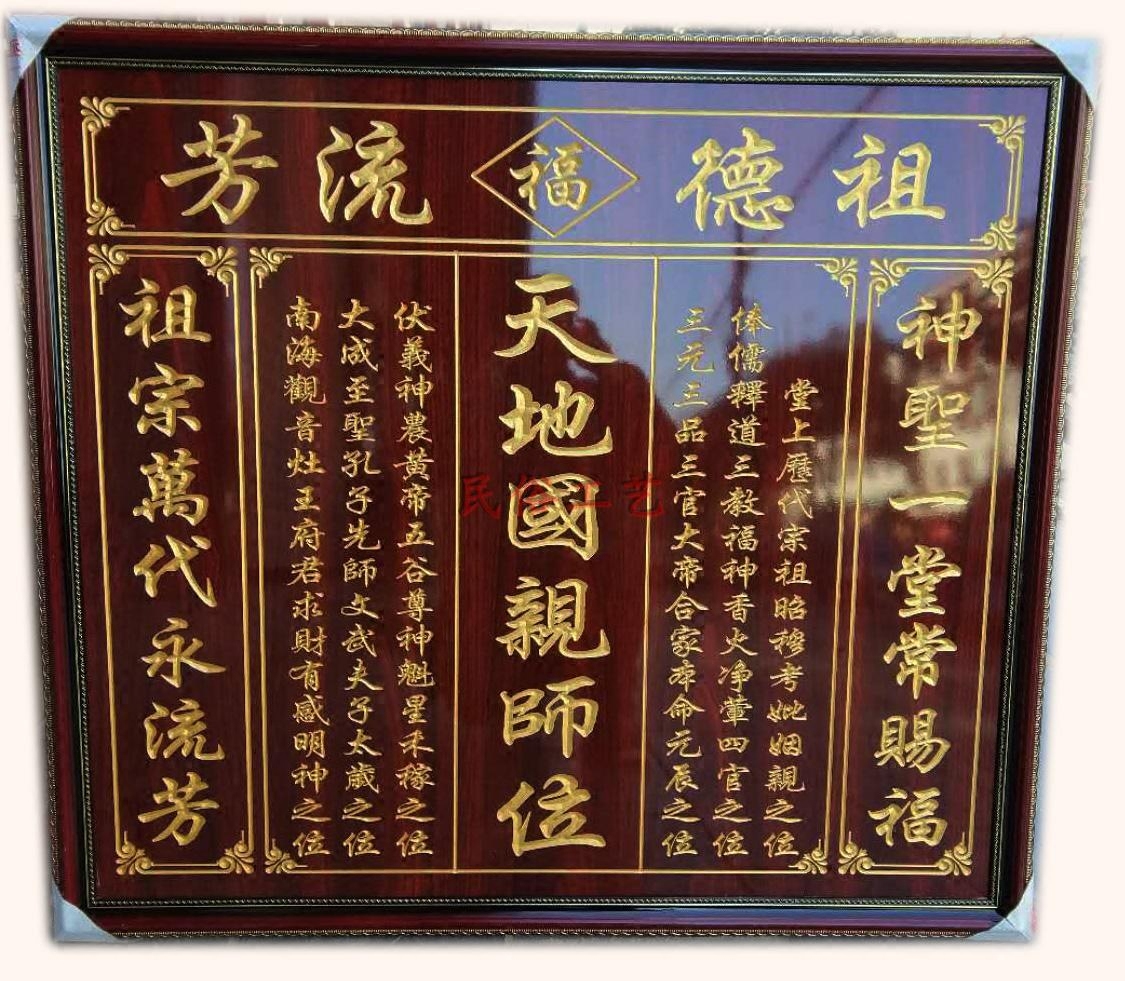 祖德福流芳
神聖一堂常賜福
堂上歷代宗祖昭穆考妣姻親之位
俸儒釋道三教福神香火净葷四官之位
三元三品三官大帝合家本命元辰之位
天地國親師位
伏義神農黄帝五谷尊神魁星禾稼之位
大成至聖孔子先師文武夫子太歲之位
南海觀音灶王府君求財有感明神之位
祖宗萬代永流芳
民俗工艺